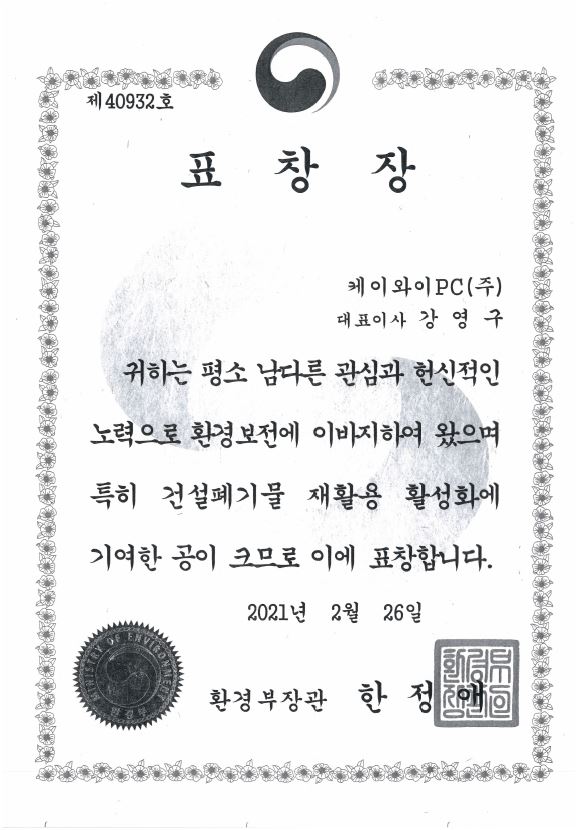 제40932호
표 창 장
케이와이PC(주)
대표이사 강 영 구
귀하는 평소 남다른 관심과 헌신적인
노력으로 환경보전에 이바지하여 왔으며
특히 건설폐기물 재활용 활성화에
기여한 공이 크므로 이에 표창합니다.
2021년 2월 26일
MINISTRY OF ENVIRONMENT
환경부
환경부장관 한 정 애